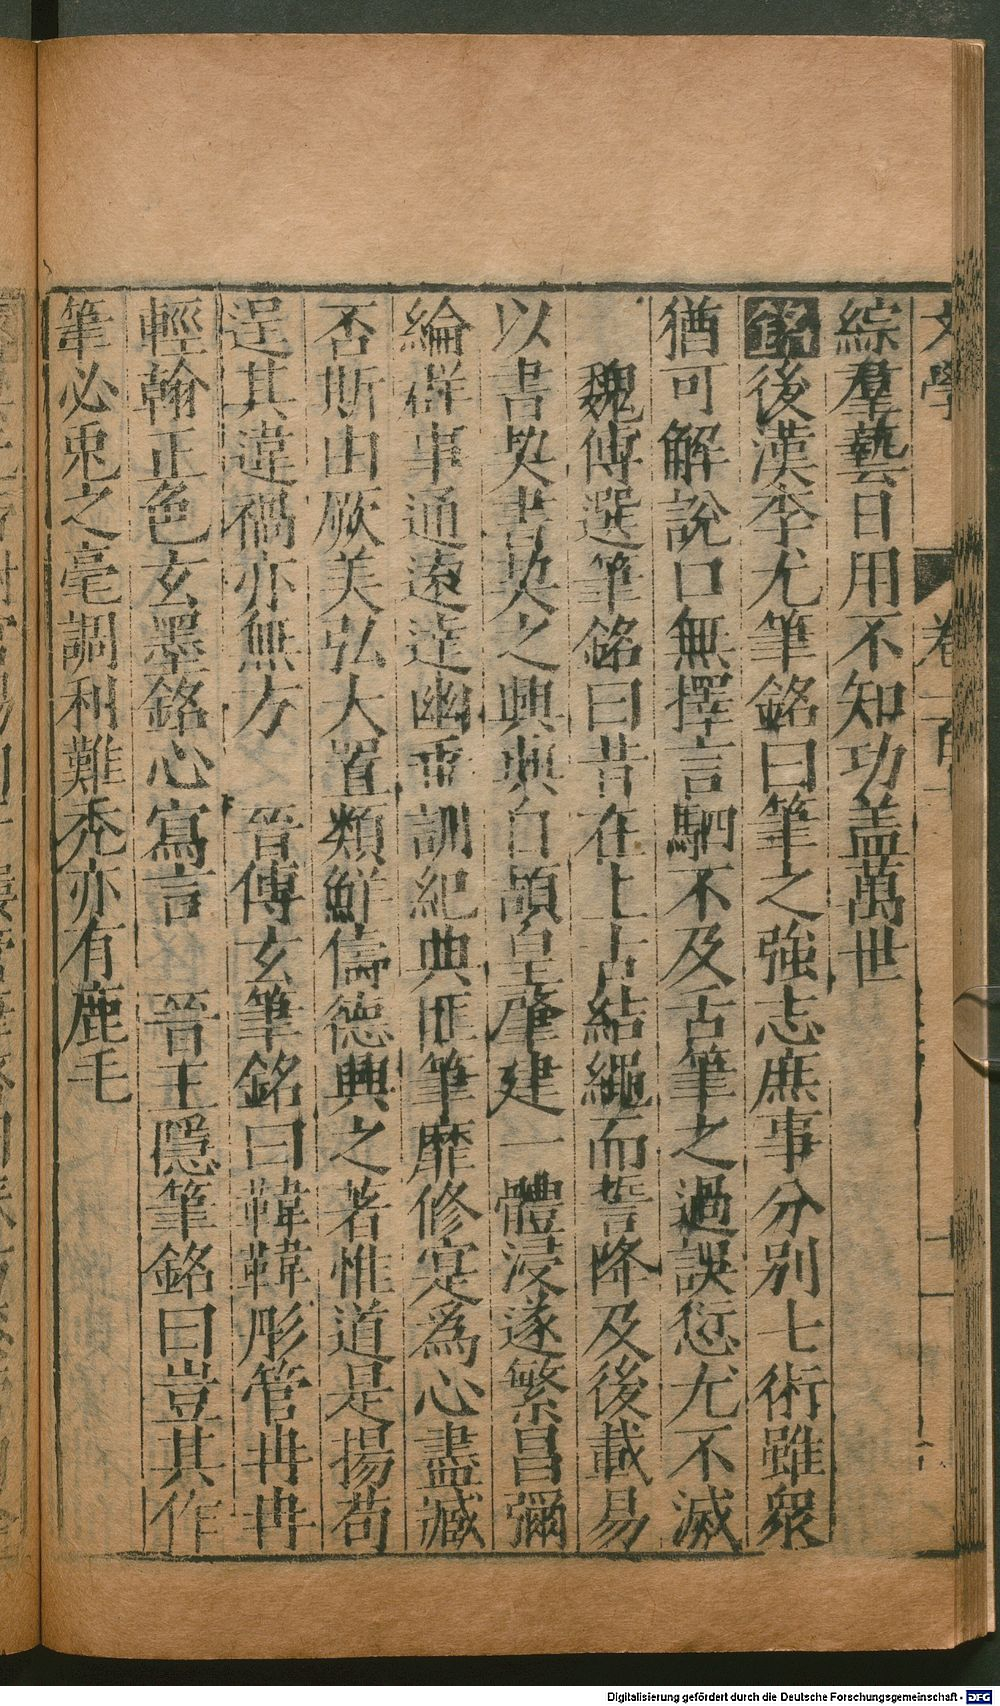 文學 卷一百 二
綜羣藝日用不知功盖萬世
銘後漢李尤筆銘曰筆之強志庶事分別七術雖衆
猶可解說口無擇言駟不及舌筆之過誤愆尤不滅
魏傅選筆銘曰昔在上古結繩而誓降及後載易
以書契書契之興興自頡皇肇建一體浸遂繁昌彌
綸群事通遠達幽垂訓紀典匪筆靡修寔爲心盡臧
否斯由厥美弘大置類鮮儔德興之著惟道是揚苟
逞其違禍亦無方 晉傅玄筆銘曰韡韡彤管冉冉
輕翰正色玄墨銘心寫言 晉王隱筆銘曰豈其作
筆必兎之毫調利難禿亦有鹿毛
Digitalisierung gefördert durch die Deutsche Forschungsgemeinschaft - DFG